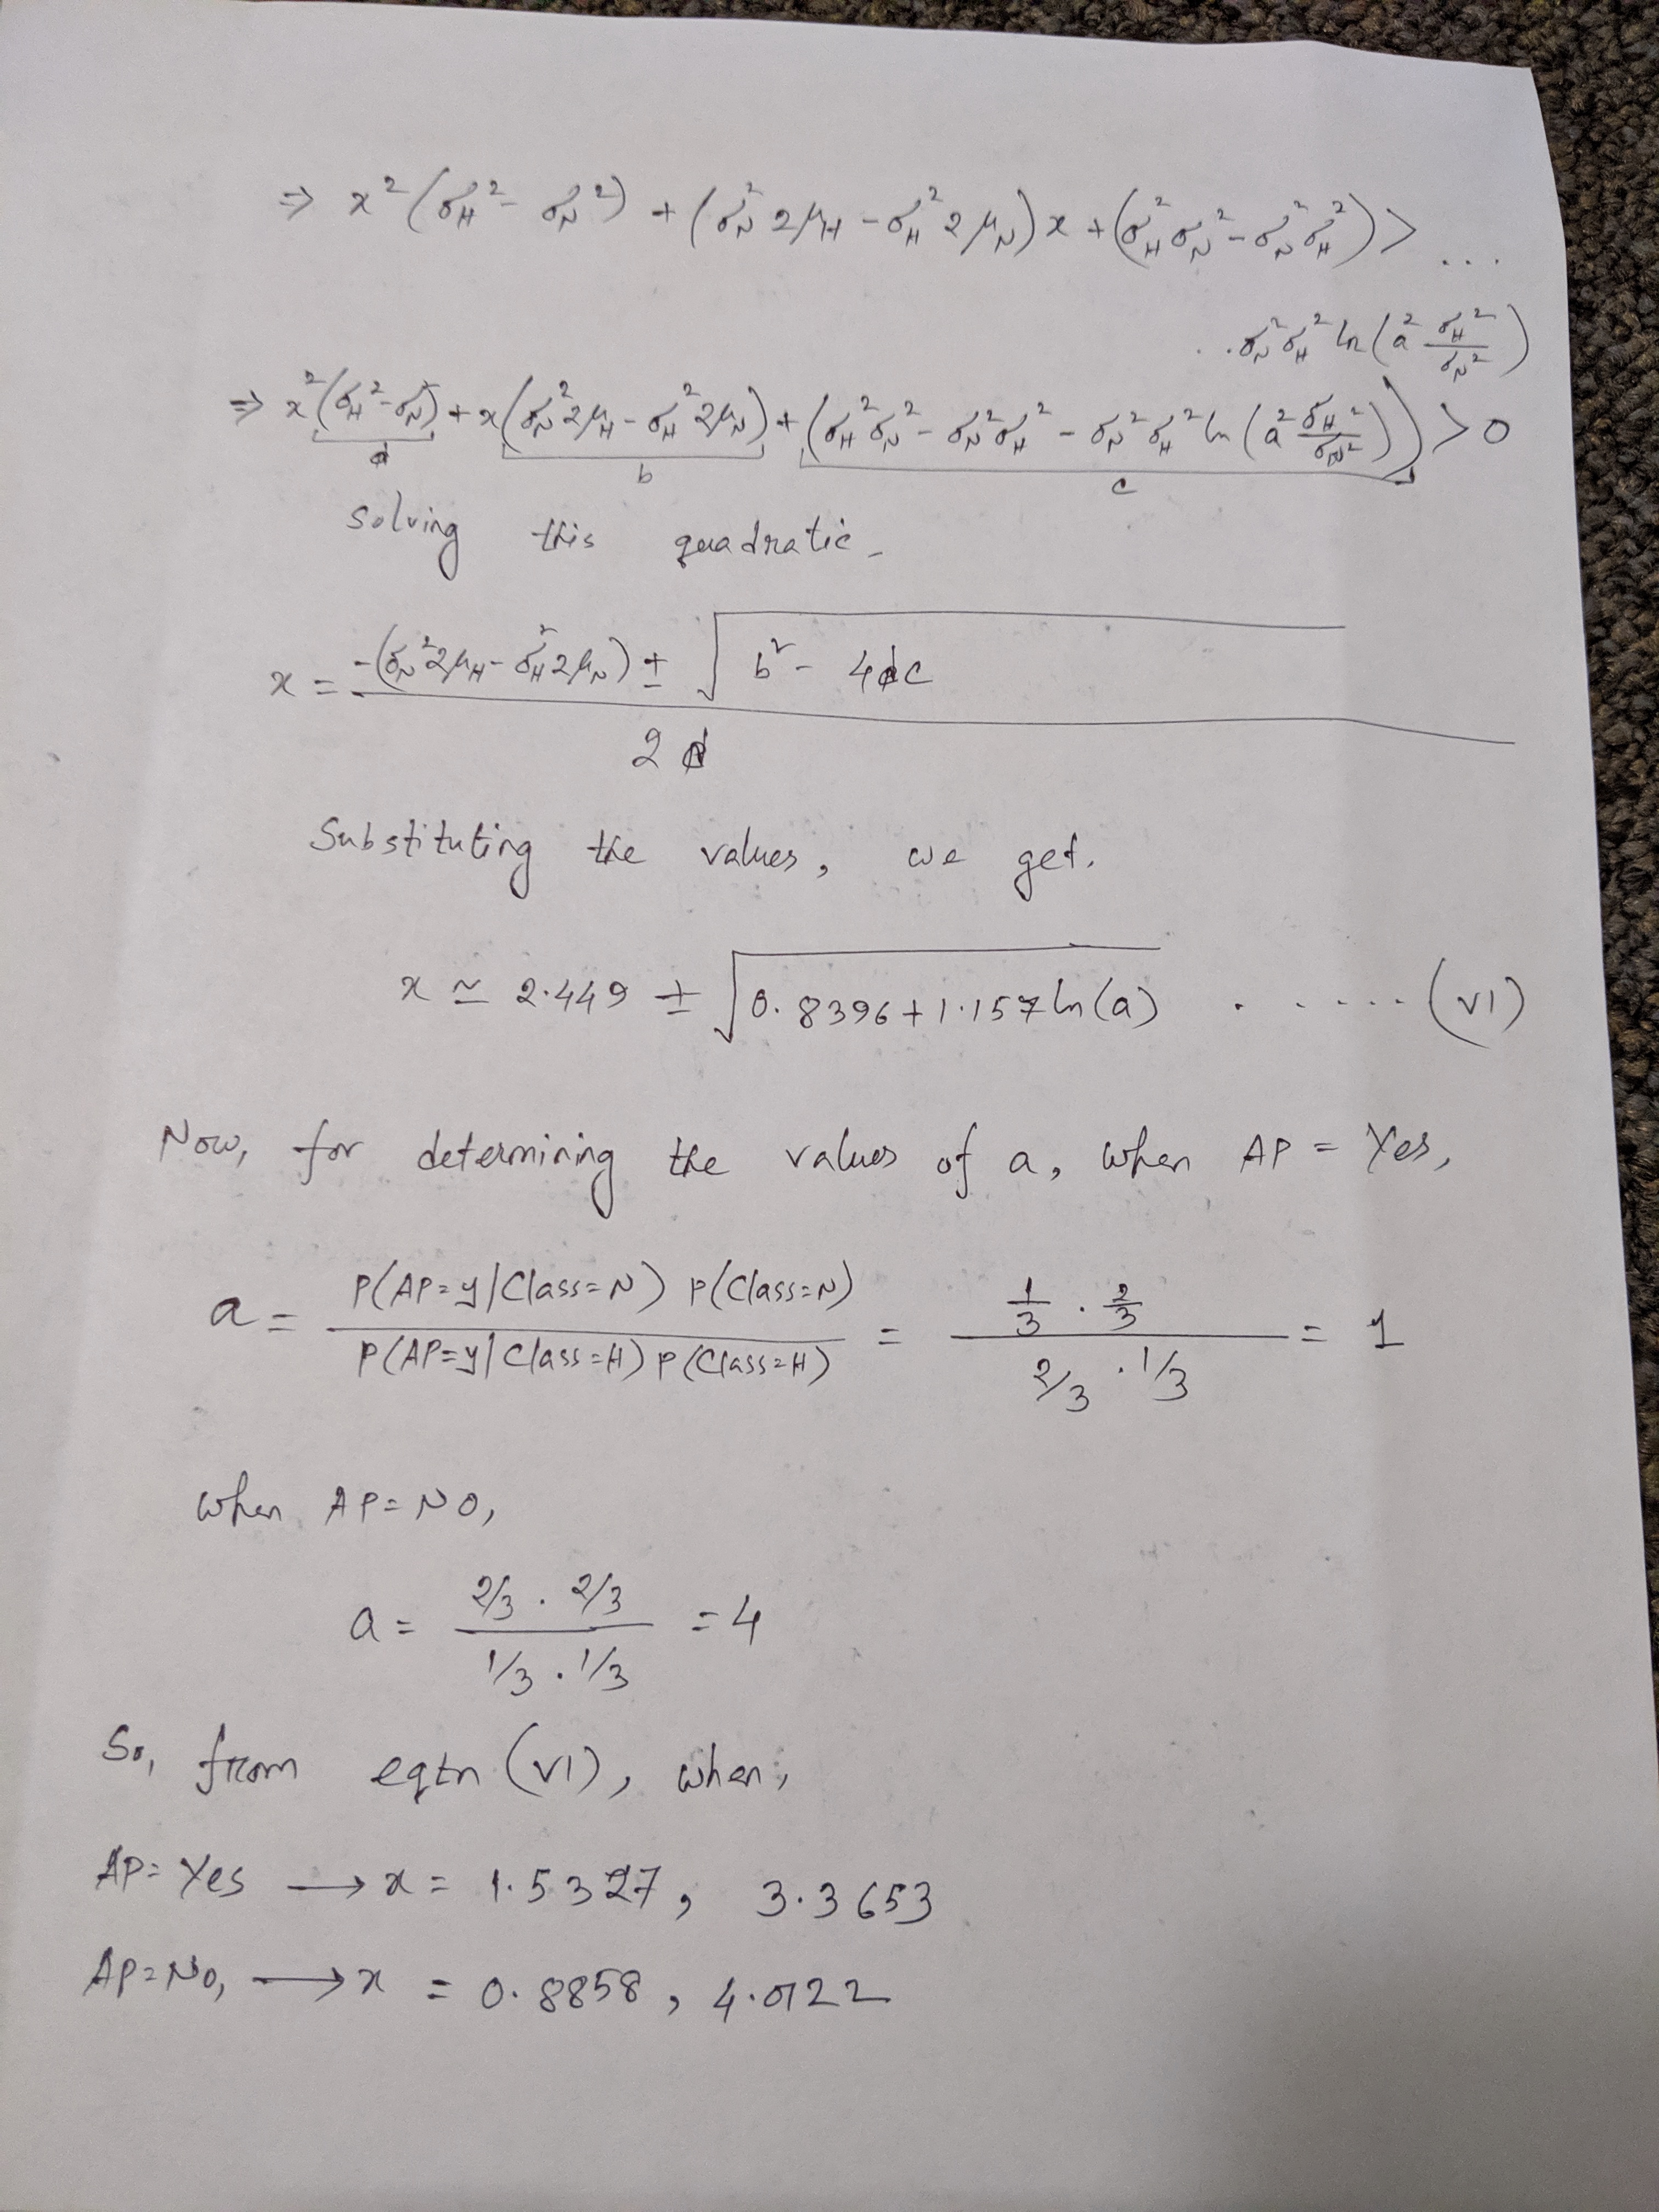 ⇒ x²(σ_H² - σ_N²) + (σ_N² 2μ_H - σ_H² 2μ_N)x + (σ_H² σ_N² - σ_N² σ_H²) > ...
. . σ_N² σ_H² ln(a² σ_H²/σ_N²)
⇒ x²(σ_H² - σ_N²) + x(σ_N² 2μ_H - σ_H² 2μ_N) + (σ_H² σ_N² - σ_N² σ_H² - σ_N² σ_H² ln(a² σ_H²/σ_N²)) > 0
d b c
solving this quadratic -
x = (-(σ_N² 2μ_H - σ_H² 2μ_N) ± √(b² - 4dc)) / 2d
Substituting the values, we get.
x ≃ 2.449 ± √(0.8396 + 1.157 ln(a)) . ..... (VI)
Now, for determining the values of a, when AP = Yes,
a = P(AP=y|Class=N) P(Class=N) / P(AP=y|Class=H) P(Class=H) = (1/3 . 2/3) / (2/3 . 1/3) = 1
when AP = NO,
a = (2/3 . 2/3) / (1/3 . 1/3) = 4
So, from eqtn (VI), when,
AP = Yes → x = 1.5327, 3.3653
AP = No, → x = 0.8858, 4.0122